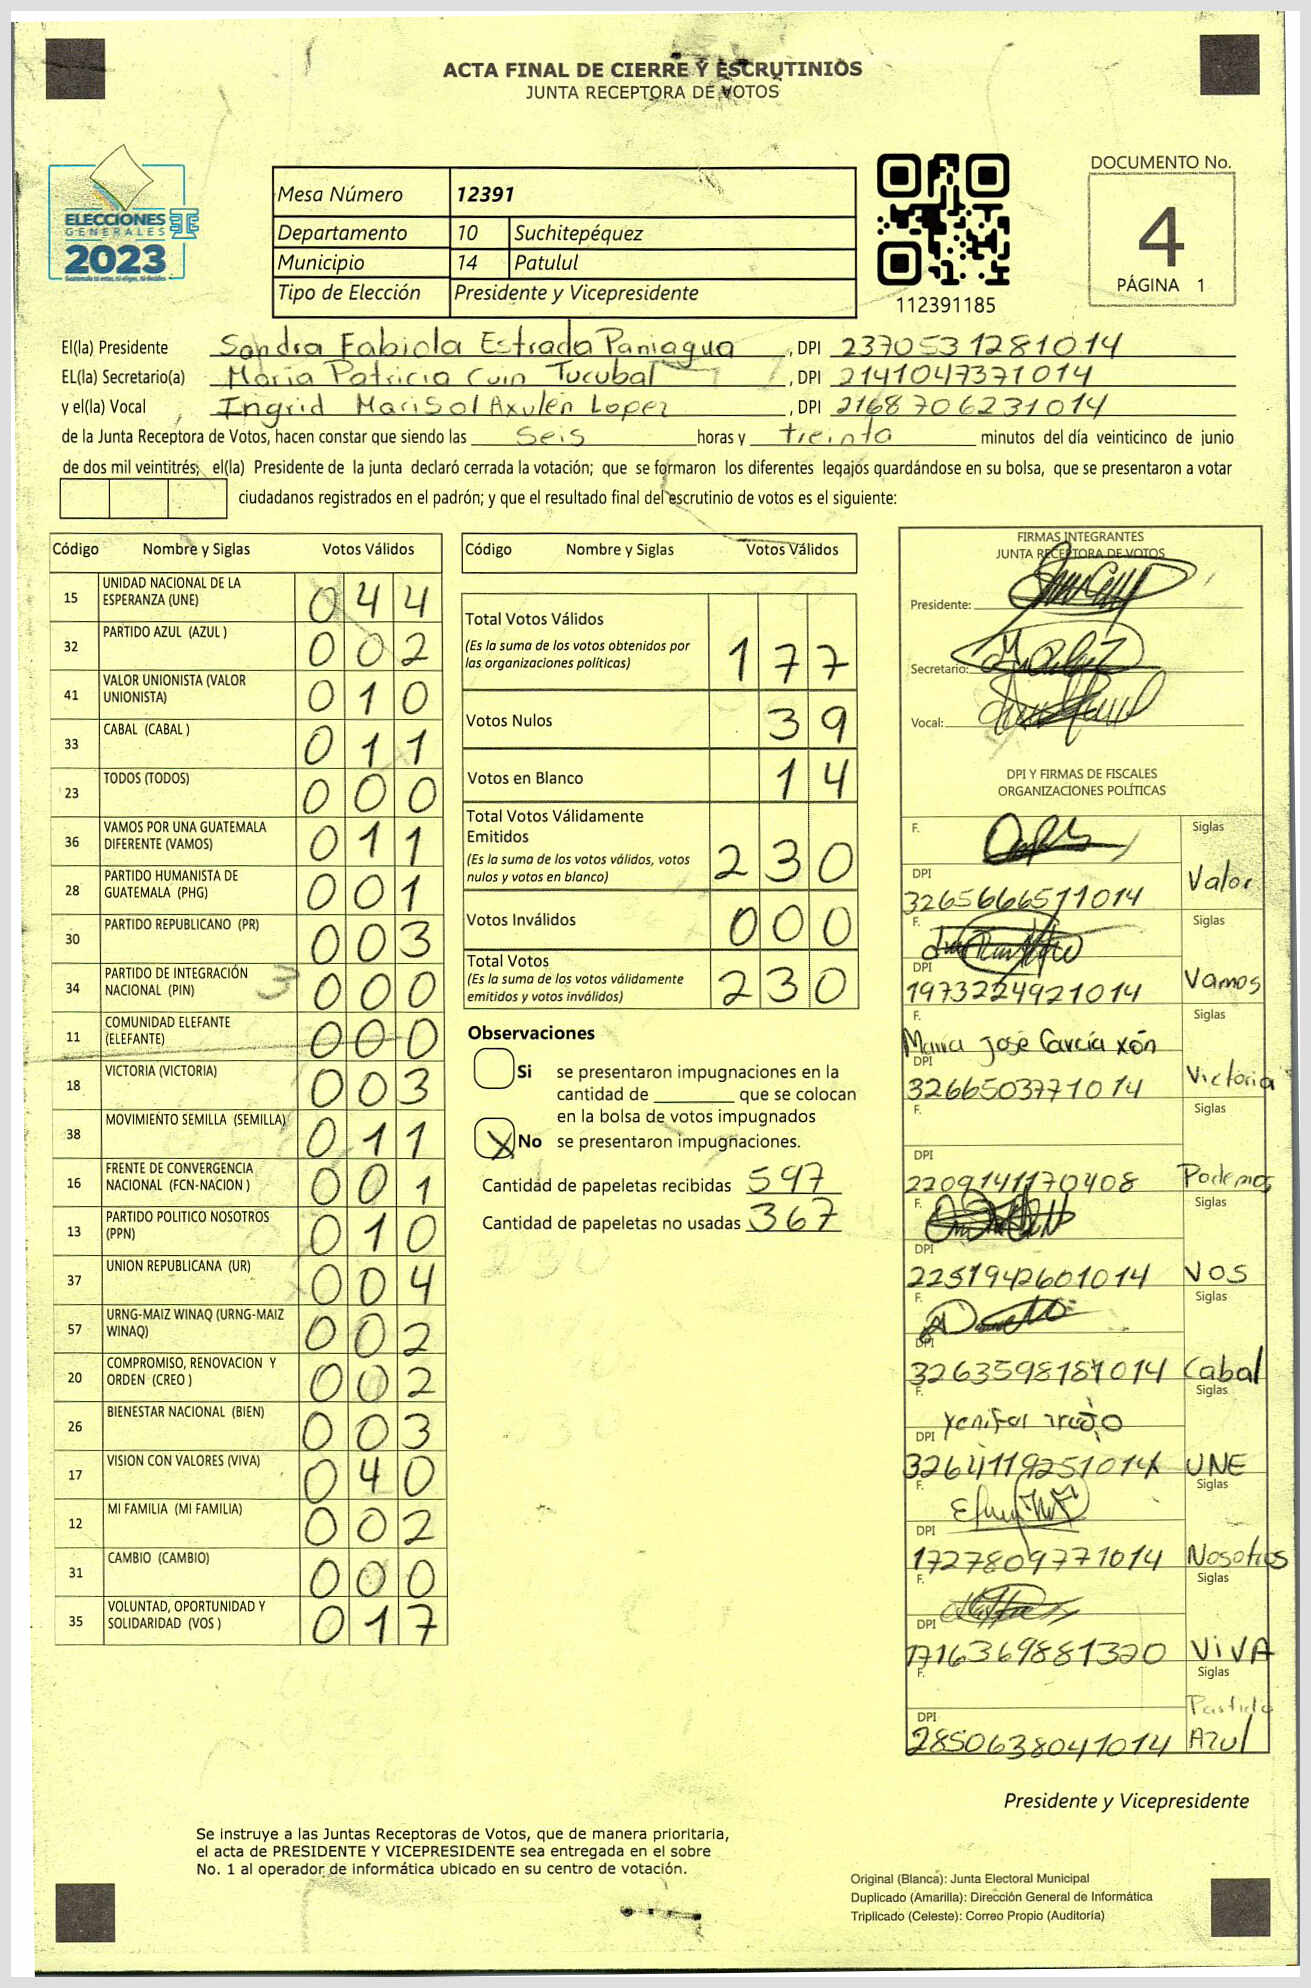 ACTA FINAL DE CIERRE Y ESCRUTINIOS
JUNTA RECEPTORA DE VOTOS
ELECCIONES
GENERALES
2023
Mesa Número 12391
Departamento 10 Suchitepéquez
Municipio 14 Patulul
Tipo de Elección Presidente y Vicepresidente
112391185
DOCUMENTO No.
4
PÁGINA 1
El(la) Presidente Sandra Fabiola Estrada Paniagua , DPI 2370531281014
EL(la) Secretario(a) Maria Patricia Cuin Tucubal , DPI 2141047371014
y el(la) Vocal Ingrid MariSol Axulén Lopez , DPI 2168706231014
de la Junta Receptora de Votos, hacen constar que siendo las seis horas y treinta minutos del día veinticinco de junio
de dos mil veintitrés; el(la) Presidente de la junta declaró cerrada la votación; que se formaron los diferentes legajos guardándose en su bolsa, que se presentaron a votar
ciudadanos registrados en el padrón; y que el resultado final del escrutinio de votos es el siguiente:
Código Nombre y Siglas Votos Válidos
15 UNIDAD NACIONAL DE LA ESPERANZA (UNE) 044
32 PARTIDO AZUL (AZUL ) 002
41 VALOR UNIONISTA (VALOR UNIONISTA) 010
33 CABAL (CABAL ) 011
23 TODOS (TODOS) 000
36 VAMOS POR UNA GUATEMALA DIFERENTE (VAMOS) 011
28 PARTIDO HUMANISTA DE GUATEMALA (PHG) 001
30 PARTIDO REPUBLICANO (PR) 003
34 PARTIDO DE INTEGRACIÓN NACIONAL (PIN) 3 000
11 COMUNIDAD ELEFANTE (ELEFANTE) 000
18 VICTORIA (VICTORIA) 003
38 MOVIMIENTO SEMILLA (SEMILLA) 011
16 FRENTE DE CONVERGENCIA NACIONAL (FCN-NACION ) 001
13 PARTIDO POLITICO NOSOTROS (PPN) 010
37 UNION REPUBLICANA (UR) 004
57 URNG-MAIZ WINAQ (URNG-MAIZ WINAQ) 002
20 COMPROMISO, RENOVACION Y ORDEN (CREO ) 002
26 BIENESTAR NACIONAL (BIEN) 003
17 VISION CON VALORES (VIVA) 040
12 MI FAMILIA (MI FAMILIA) 002
31 CAMBIO (CAMBIO) 000
35 VOLUNTAD, OPORTUNIDAD Y SOLIDARIDAD (VOS ) 017
Código Nombre y Siglas Votos Válidos
Total Votos Válidos
(Es la suma de los votos obtenidos por
las organizaciones políticas) 177
Votos Nulos 39
Votos en Blanco 14
Total Votos Válidamente
Emitidos
(Es la suma de los votos válidos, votos
nulos y votos en blanco) 230
Votos Inválidos 000
Total Votos
(Es la suma de los votos válidamente
emitidos y votos inválidos) 230
Observaciones
Si se presentaron impugnaciones en la
cantidad de ________ que se colocan
en la bolsa de votos impugnados
X No se presentaron impugnaciones.
Cantidad de papeletas recibidas 597
Cantidad de papeletas no usadas 367
FIRMAS INTEGRANTES
JUNTA RECEPTORA DE VOTOS
Presidente:
Secretario:
Vocal:
DPI Y FIRMAS DE FISCALES
ORGANIZACIONES POLÍTICAS
F. Siglas
DPI
3265666511014 Valor
F. Siglas
DPI
1973224921014 Vamos
F. Siglas
Maria José García Xón
DPI
3266503771014 Victoria
F. Siglas
DPI
2209141170408 Podemos
F. Siglas
DPI
2251942601014 VOS
F. Siglas
DPI
3263598181014 Cabal
F. Siglas
DPI
3264119251014 UNE
F. Siglas
DPI
1727809771014 Nosotros
F. Siglas
DPI
1716369881320 VIVA
F. Siglas
DPI Partido
2850638041014 Azul
Presidente y Vicepresidente
Se instruye a las Juntas Receptoras de Votos, que de manera prioritaria,
el acta de PRESIDENTE Y VICEPRESIDENTE sea entregada en el sobre
No. 1 al operador de informática ubicado en su centro de votación.
Original (Blanca): Junta Electoral Municipal
Duplicado (Amarilla): Dirección General de Informática
Triplicado (Celeste): Correo Propio (Auditoría)